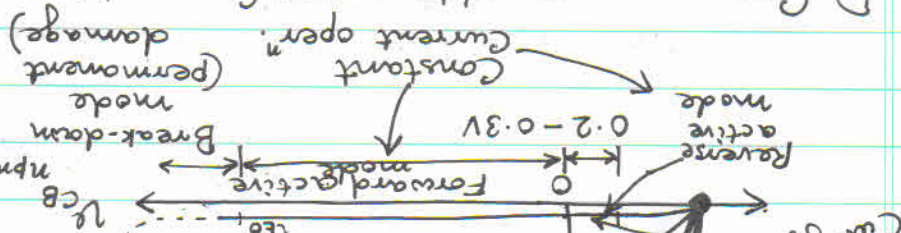 v_CB
npn
0
Forward active
mode
Reverse
active
mode
0.2 - 0.3V
Break-down
mode
(permanent
damage)
Constant
Current oper".